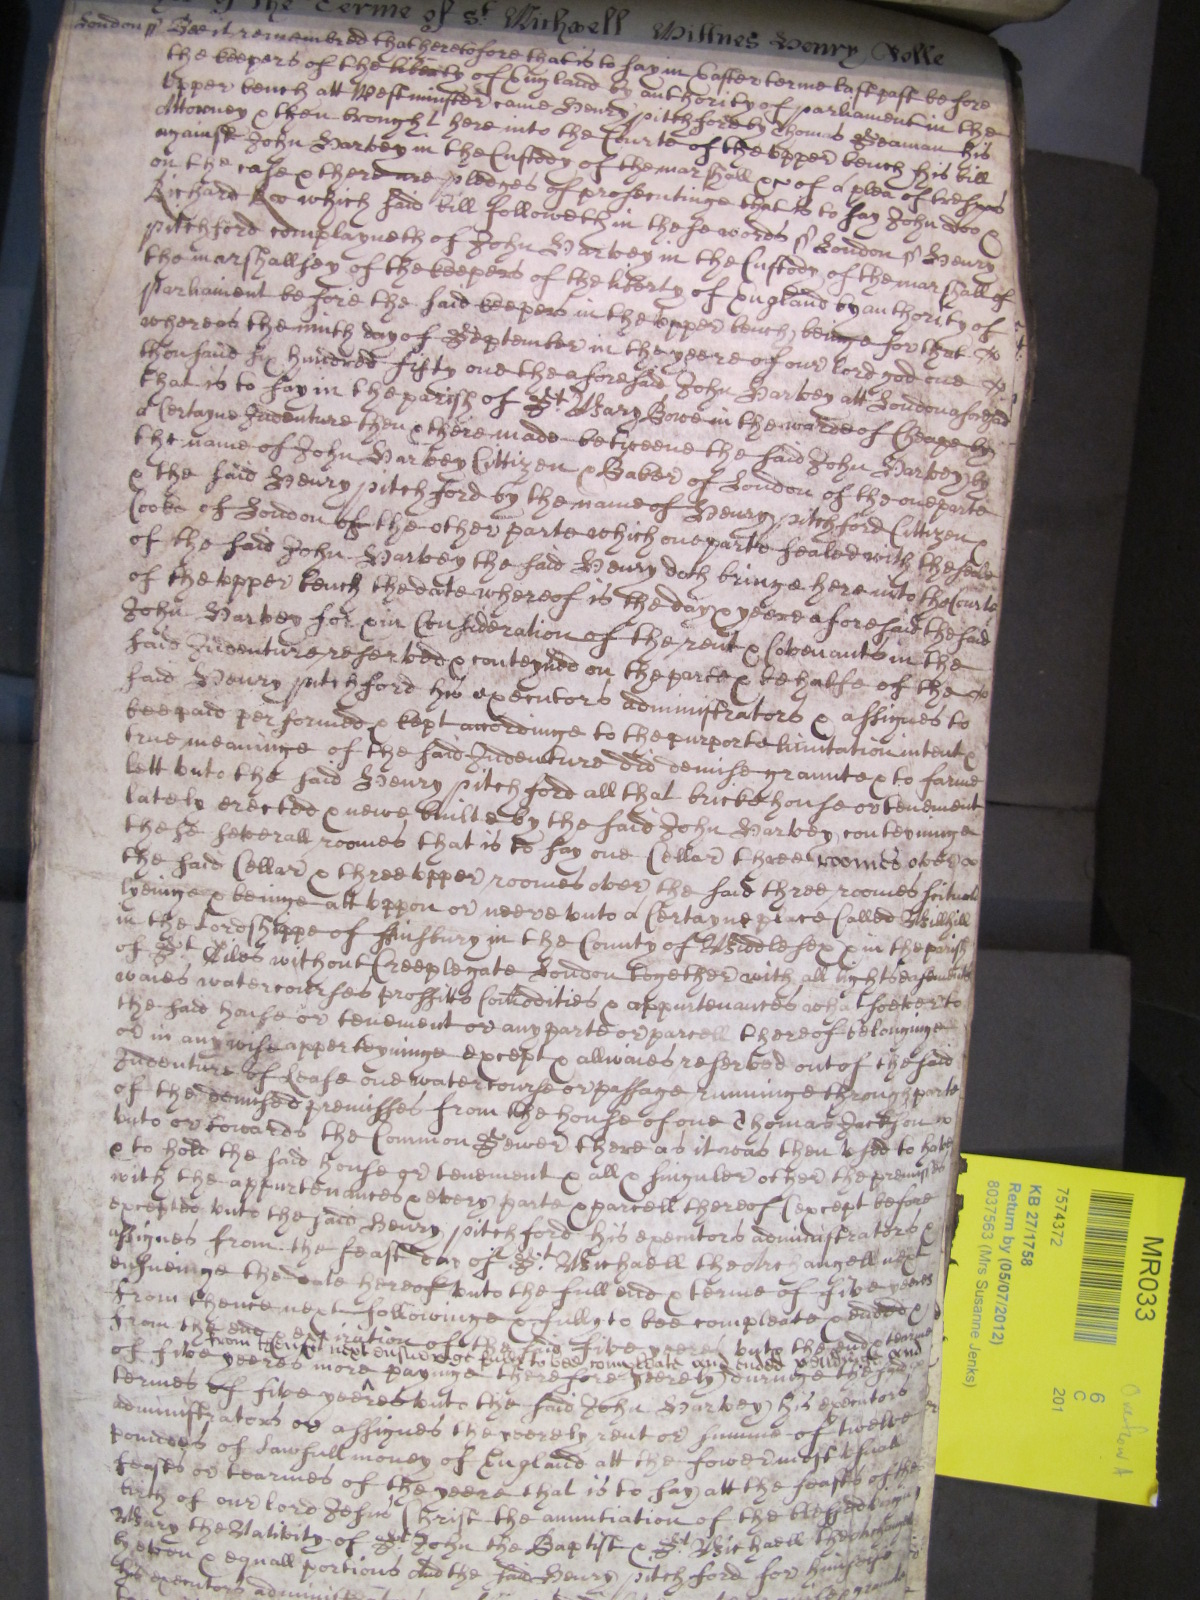 of the Terme of St Michaell Willnes Henry Rolle
London ss Bee it remembred that heretofore that is to say in Easter terme last past before
the keepers of the liberty of England by authority of parliament in the
upper bench att Westminster came Henry pitchford by Thomas Seaman his
Attorney & then brought here into the Courte of the upper bench his bill
against John Harvey in the Custody of the marshall &c of a plea of trespas
on the case & there are pledges of prosecutinge that is to say John doo &
Richard Roo which said bill followeth in these words ss London ss Henry
pitchford complayneth of John Harvey in the Custody of the marshall of
the marshallsey of the keepers of the liberty of England by authority of
parliament before the said keepers in the upper bench beinge for that
whereas the ninth day of September in the yeere of our lord god one
thousand six hundred fifty one the aforesaid John Harvey att London aforesaid
that is to say in the parish of St Mary Bowe in the warde of Cheape by
a Certayne Indenture then & there made betweene the said John Harvey by
the name of John Harvey Cittizen & Baker of London of the one parte
& the said Henry pitchford by the name of Henry pitchford Cittizen &
Cooke of London of the other parte which one parte sealed with the seale
of the said John Harvey the said Henry doth bringe here into the Courte
of the upper bench the date whereof is the day & yeere aforesaid the said
John Harvey for & in Consideration of the rent & Covenants in the
said Indenture reserved & conteyned on the parte & behalfe of the
said Henry pitchford his executors administrators & assignes to
bee paid performed & kept accordinge to the purporte limitation intent &
true meaninge of the said Indenture did demise graunte & to farme
lett unto the said Henry pitchford all that bricke house or tenement
lately erected & newe builte by the said John Harvey conteyninge
these severall roomes that is to say one Cellar three roomes over
the said Cellar & three upper roomes over the said three roomes scituate
lyeinge & beinge att uppon or neere unto a Certayne place Called Millhill
in the Lordshippe of ffinsbury in the County of Middlesex & in the parish
of St Giles without Creeplegate London together with all lights easements
waies watercourses proffitts Comodities & appurtenances whatsoever to
the said house or tenement or any parte or parcell thereof belonginge
or in any wise apperteyninge except & allwaies reserved out of the said
Indenture of Lease one watercourse or passage runninge through parte
of the demised premisses from the house of one Thomas Jackson
unto or towards the Common Sewer there as it was then used to have
& to hold the said house or tenement & all & singuler other the premisses
with the appurtenances & every parte & parcell thereof (except before
excepted unto the said Henry pitchford his executors administrators &
assignes from the feast day of St Michaell the Archangell next
ensueinge the date hereof unto the full end & terme of five yeeres
from thence next followinge & fully to bee compleate & ended &
from the end & expiration of the said five yeeres unto the end & tearme
from thence next ensueinge & fully to bee compleate and ended & yeeldinge and
of five yeeres more payinge therefore yeerely duringe the said
termes of five yeeres unto the said John Harvey his executors
administrators or assignes the yeerely rent or summe of twelve
poundes of lawfull money of England att the fower most usuall
feasts or tearmes of the yeere that is to say att the feasts of the
birth of our lord Jesus Christ the anuntiation of the blessed virgin
Mary the Nativity of St John the Baptist & St Michaell the Archangell
by even & equall portions And the said Henry pitchford for himselfe
his executors administrators
MR033
6
C
201
7574372
KB 27/1758
Return by (05/07/2012)
8037563 (Mrs Susanne Jenks)
Overflow A